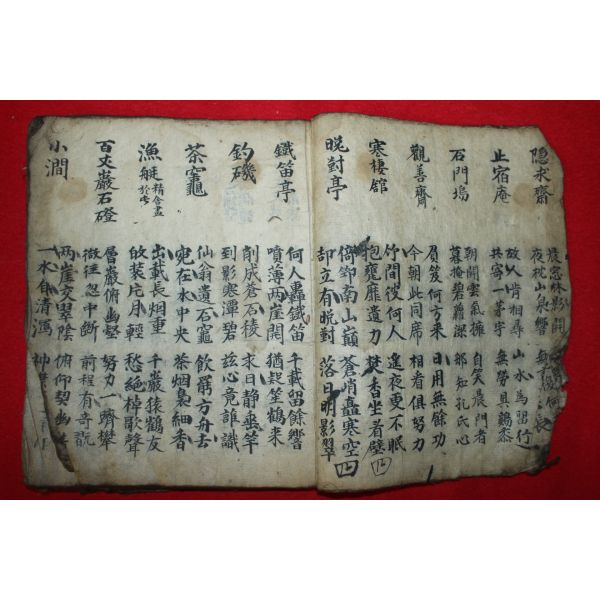 隱求齋
晨窓林影開
夜枕山泉響
止宿庵
故人肯相尋 山水爲留行
共寄一茅宇 無勞具鷄黍
石門塢
朝開雲氣擁 自笑晨門者
暮掩碧蘿深 那知孔氏心
觀善齋
負笈何方來 日用無餘功
今朝此同席 相看俱努力
寒棲館
竹間彼何人 遙夜更不眠
抱甕靡遺力 焚香坐看壁
晩對亭
倚筇南山巓 蒼峭矗寒空
却立有晩對 落日明影翠
鐵笛亭
何人轟鐵笛 千載留餘響
噴薄兩崖開 猶疑笙鶴來
釣磯
削成蒼石稜 求日靜垂竿
到影寒潭碧 玆心竟誰識
茶竈
仙翁遺石竈 飮罷方舟去
宛在水中央 茶烟裊細香
漁艇 精舍盡於此
出載長烟重 千巖猿鶴友
歸裝片月輕 愁絶棹歌聲
百丈巖石磴
層巖俯幽壑 努力一躋攀
微徑忽中斷 前程有奇翫
小澗
兩崖交翠陰 俯仰契幽
一水自清瀉 神